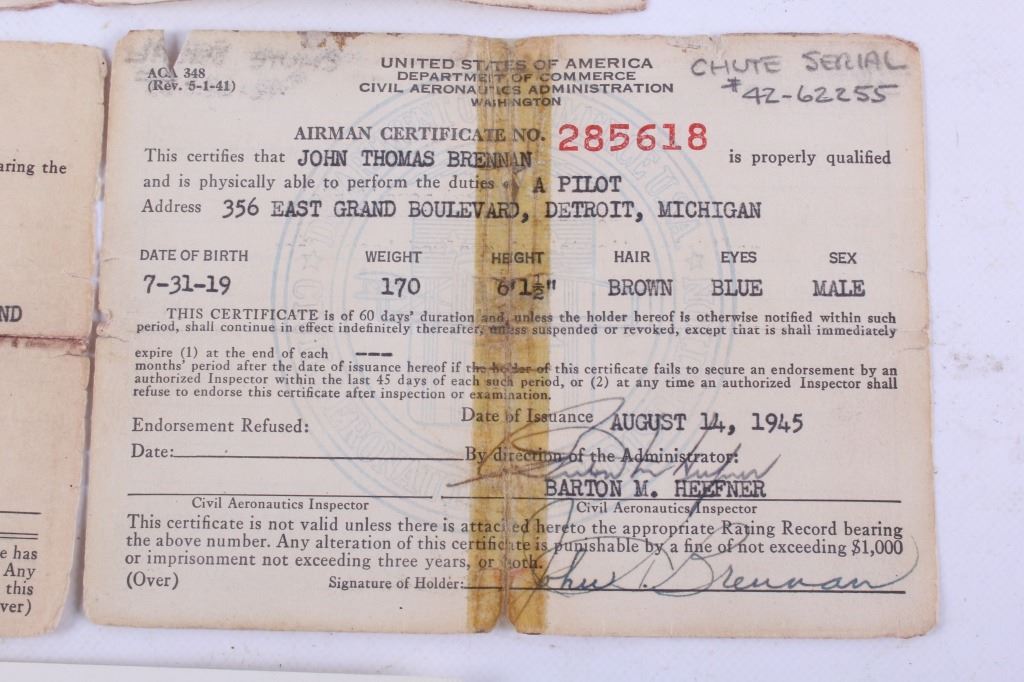 aring the
ND
e has
Any
this
ver)
ACA 348
(Rev. 5-1-41)
UNITED STATES OF AMERICA
DEPARTMENT OF COMMERCE
CIVIL AERONAUTICS ADMINISTRATION
WASHINGTON
CHUTE SERIAL
#42-62255
AIRMAN CERTIFICATE NO. 285618
This certifies that JOHN THOMAS BRENNAN is properly qualified
and is physically able to perform the duties of A PILOT
Address 356 EAST GRAND BOULEVARD, DETROIT, MICHIGAN
DATE OF BIRTH WEIGHT HEIGHT HAIR EYES SEX
7-31-19 170 6'1½" BROWN BLUE MALE
THIS CERTIFICATE is of 60 days' duration and, unless the holder hereof is otherwise notified within such
period, shall continue in effect indefinitely thereafter, unless suspended or revoked, except that is shall immediately
expire (1) at the end of each ---
months' period after the date of issuance hereof if the holder of this certificate fails to secure an endorsement by an
authorized Inspector within the last 45 days of each such period, or (2) at any time an authorized Inspector shall
refuse to endorse this certificate after inspection or examination.
Endorsement Refused:
Date of Issuance AUGUST 14, 1945
Date: By direction of the Administrator:
Barton M. Heefner
BARTON M. HEEFNER
Civil Aeronautics Inspector Civil Aeronautics Inspector
This certificate is not valid unless there is attached hereto the appropriate Rating Record bearing
the above number. Any alteration of this certificate is punishable by a fine of not exceeding $1,000
or imprisonment not exceeding three years, or both.
(Over) Signature of Holder: John T. Brennan